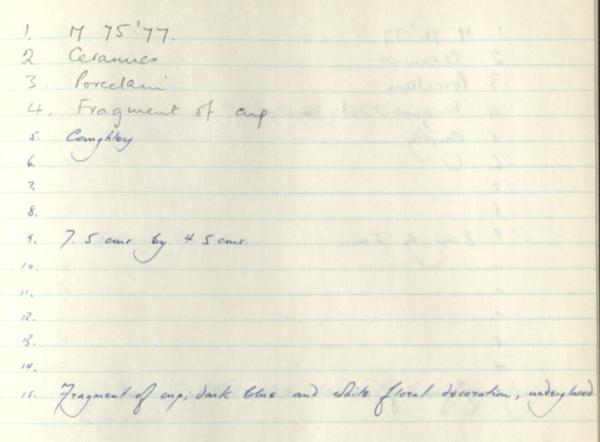 1. M 75'77.
2 Ceramics
3 Porcelain
4. Fragment of cup.
5. Caughley
6.
7.
8.
9. 7.5 cms by 4.5 cms.
10.
11.
12.
13.
14.
15. Fragment of cup; dark blue and white floral decoration, underglazed.